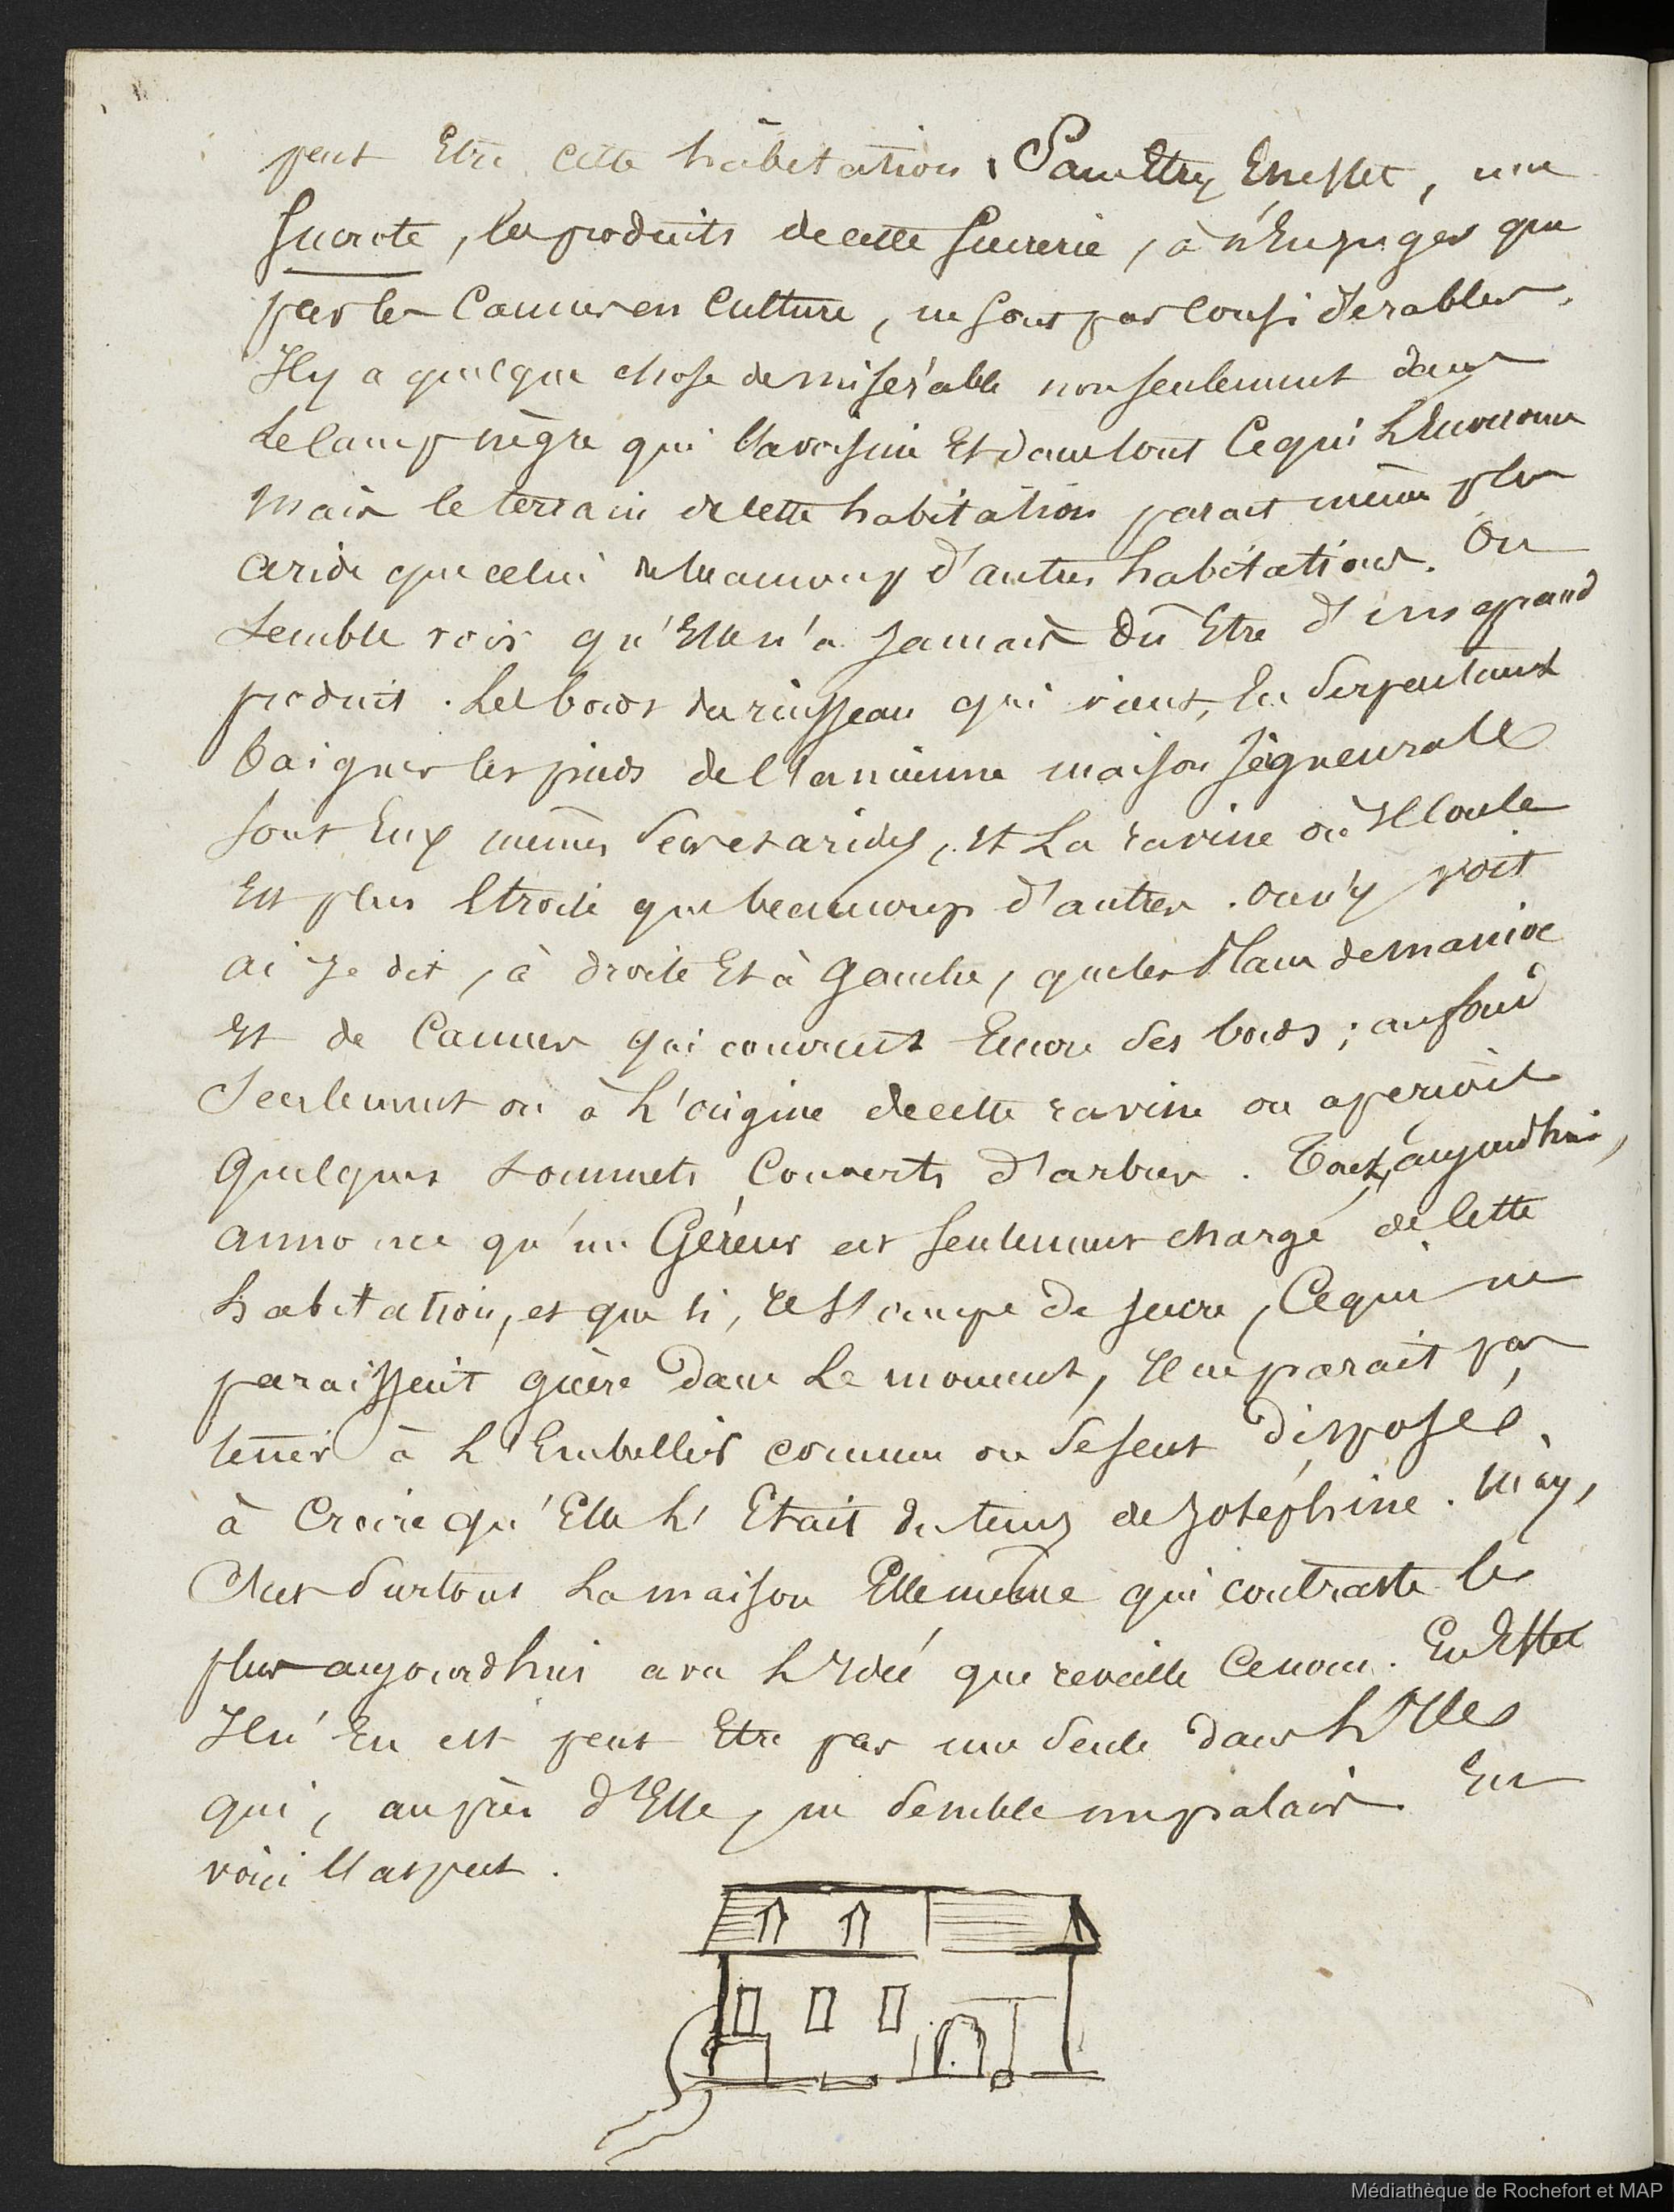 peut Etre cette habitation. Sans Etre, En effet, une
Sucrote, les produits de cette Sucrerie, à n'En juger que
par les Cannes en Culture, ne sont pas considerables.
Il y a quelque chose de misérable non seulement dans
Le Camp nègre qui l'avoisine Et dans tout Ce qui L'Environne
Mais le terrain de cette habitation parait même plus
aride que celui de beaucoup d'autres habitations. On
Semble voir qu'Elle n'a Jamais Dû Etre d'un grand
produit. Les bords du ruisseau qui vient, En Serpentant
baigner les pieds de l'ancienne maison Seigneurale
sont Eux mêmes Secs et arides, Et La ravine où Il Coule
Est plus Etroite que beaucoup d'autres. On n'y voit
ai Je dit, à droite Et à Gauche, que les Plans de manioc
Et de Cannes qui couvrent Encore Ses bords; au fond
Seulement ou à L'origine de cette ravine on aperçoit
Quelques Sommets Couverts d'arbres. Tout, aujourdhui,
annonce qu'un Géreur est Seulement chargé de Cette
habitation, et que si, Il s'occupe de sucre, Ce qui ne
parait guère Dans Le moment, Il ne parait pas
tenir à L'Embellir comme on Se sent Disposé
à Croire qu'Elle L'Etait du tems de Joséphine. Mais,
C'est Surtout La maison Elle même qui contraste le
plus aujourdhui avec L'Idée que reveille Ce nom. En Effet
Il n'En est peut Etre pas une Seule dans L'Iles
qui, auprès d'Elle, ne Semble un palais. En
voici l'aspect.
Médiathèque de Rochefort et MAP